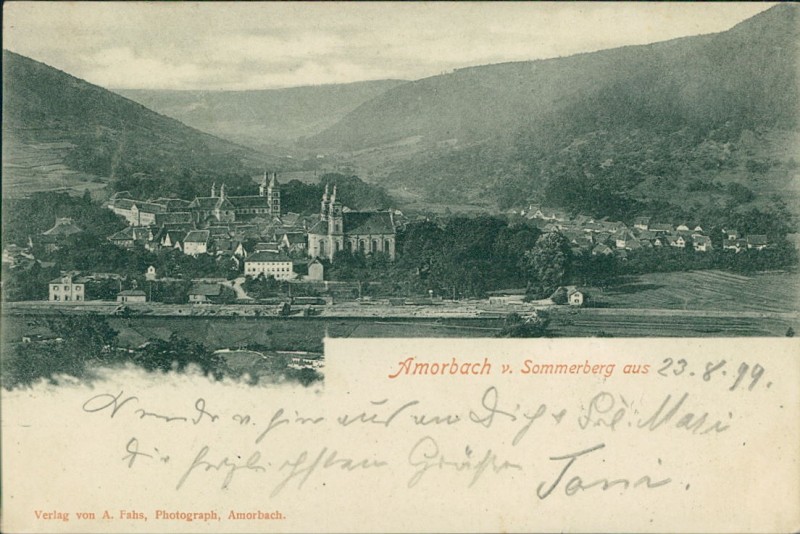 Amorbach v. Sommerberg aus 23.8.99.
v. hier aus an Dich & Frl. Mari
die herzlichsten Grüße Toni.
Verlag von A. Fahs, Photograph, Amorbach.